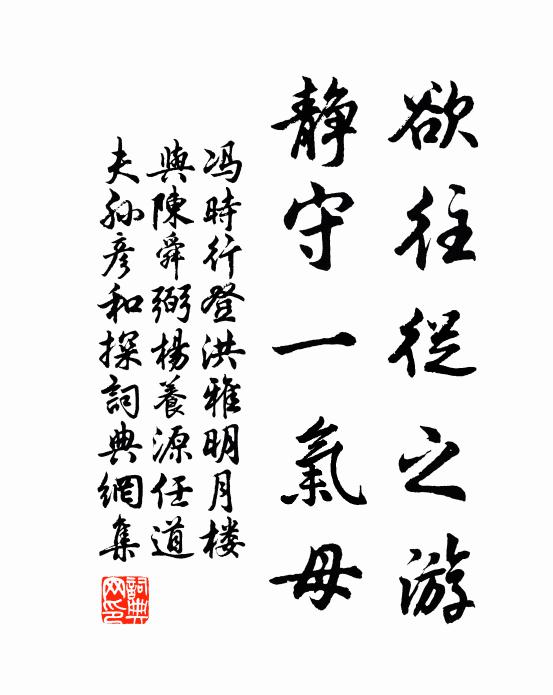 欲往從之游
静守一氣母
冯時行登洪雅明月楼
與陳舜弼楊養源任道
夫孙彦和探詞典網集
詞典